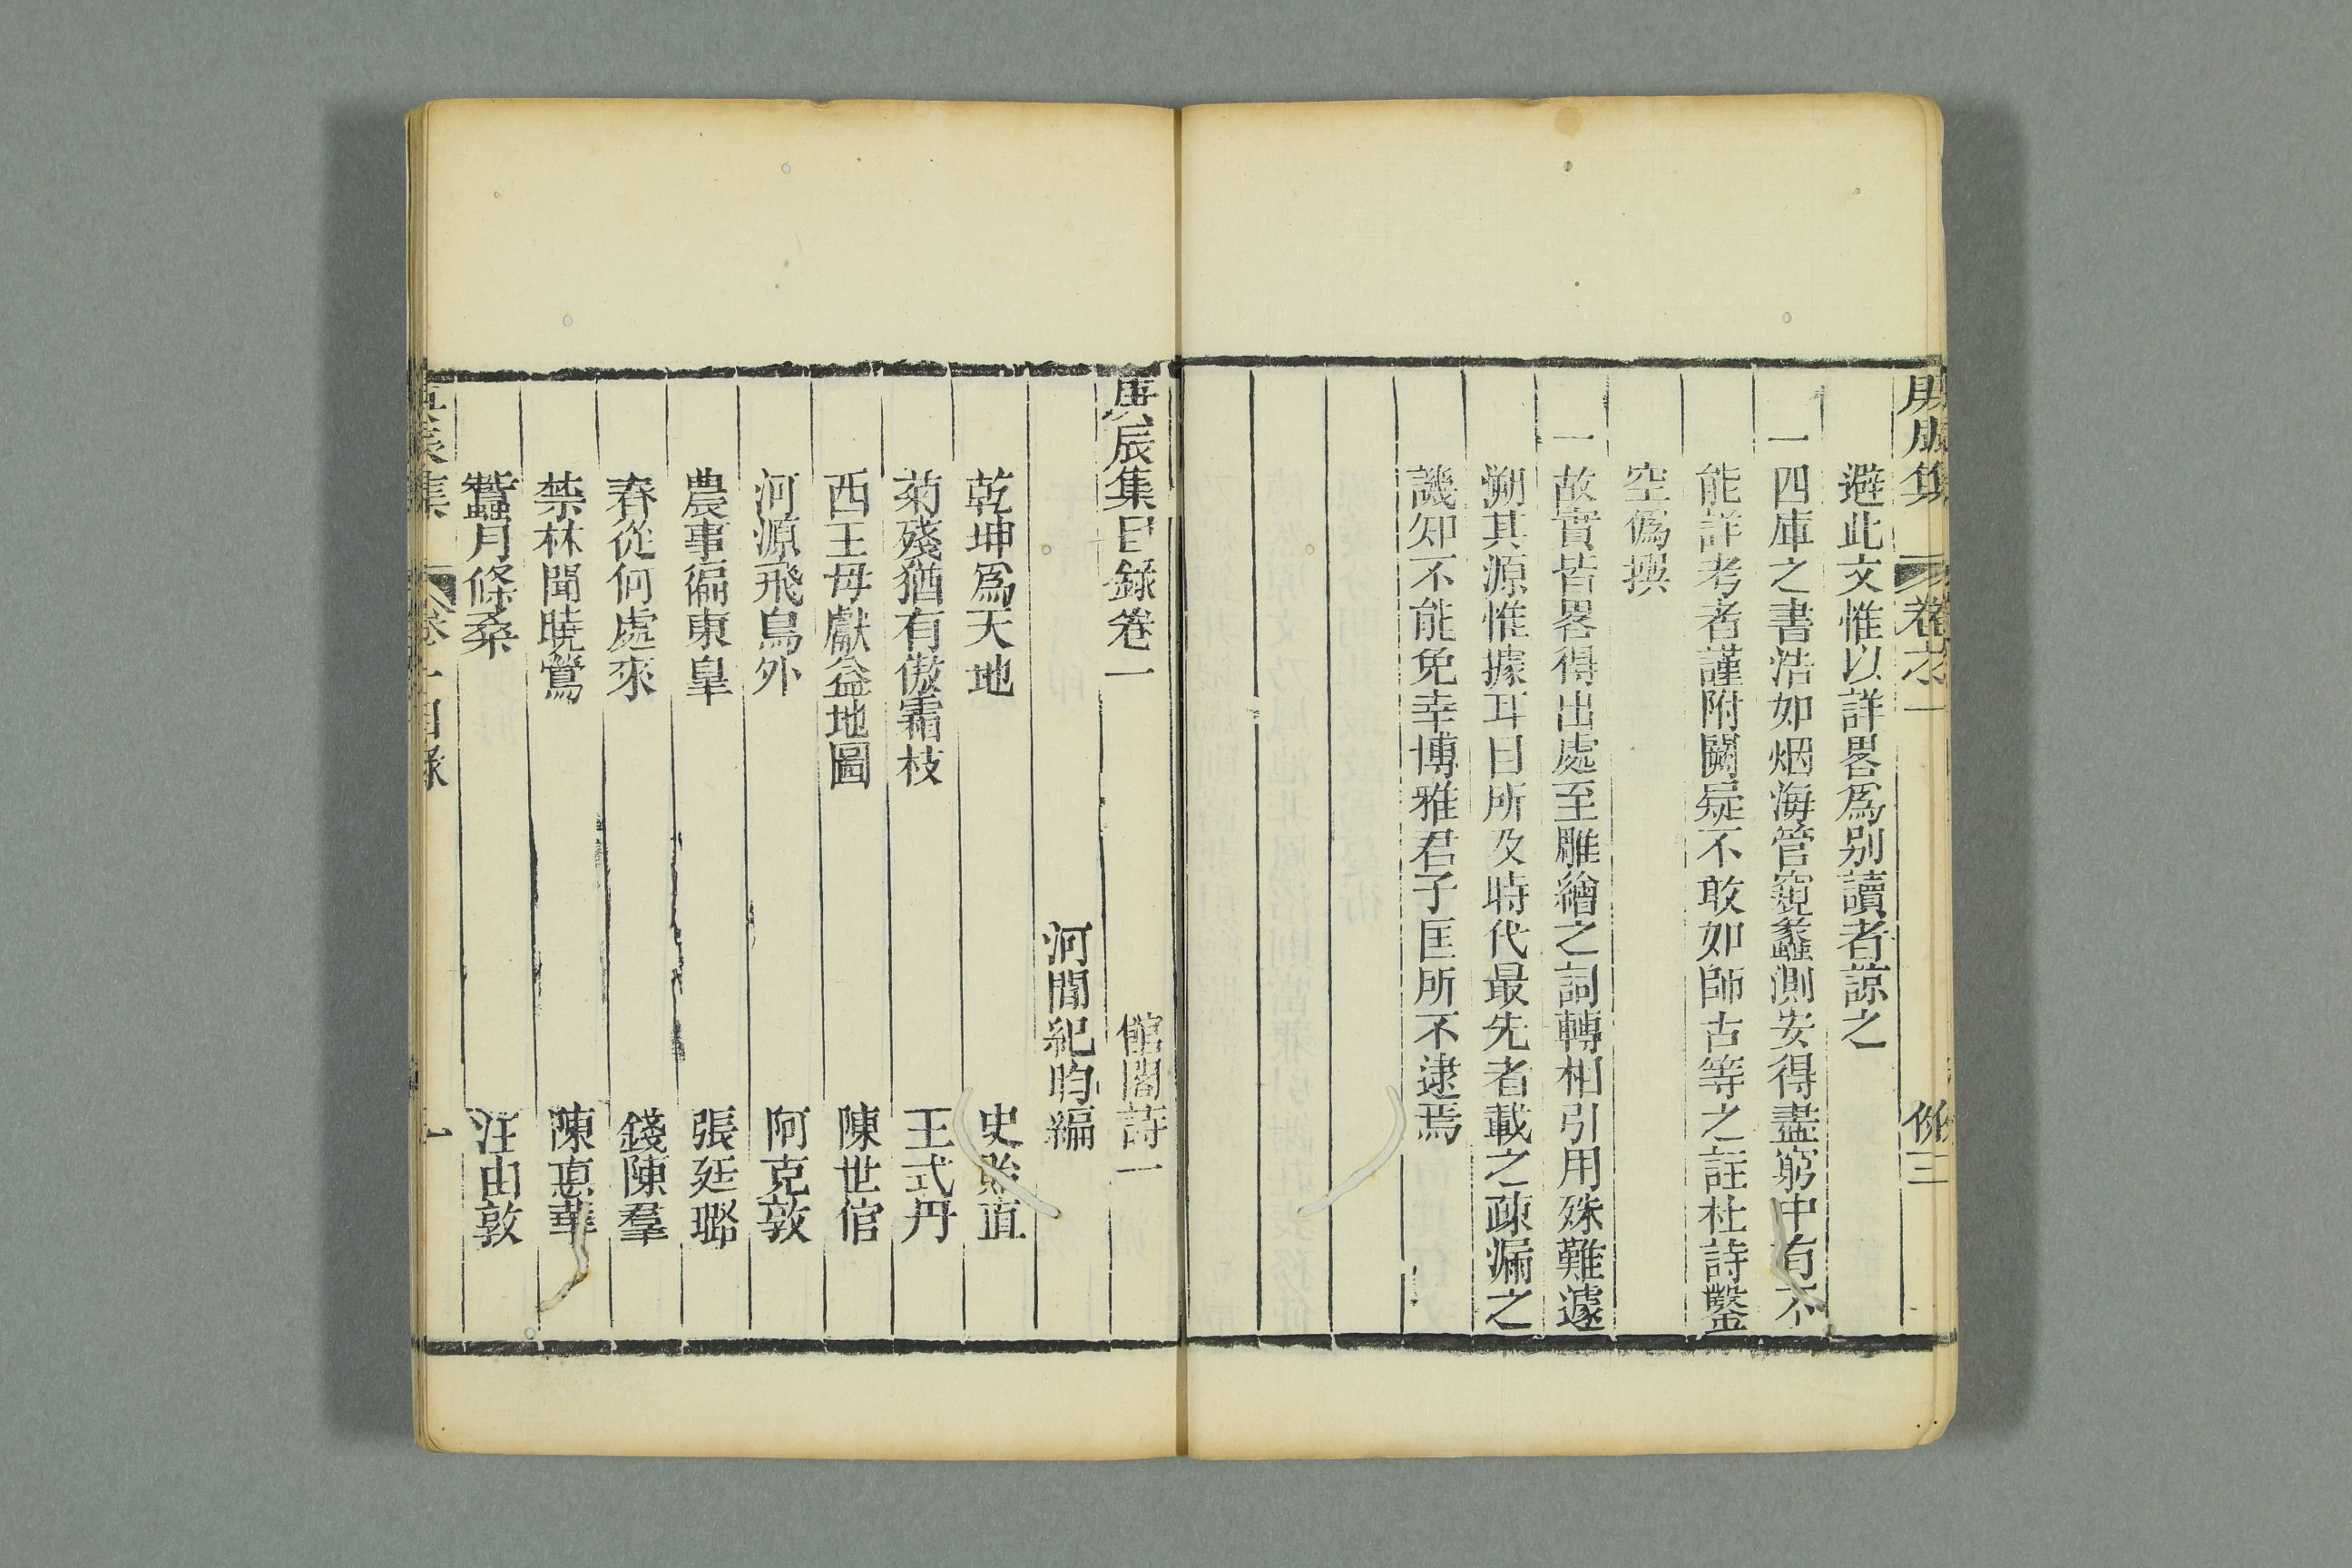 避此文惟以詳畧爲别讀者諒之
一四庫之書浩如烟海管窺蠡測安得盡窮中有不
能詳考者謹附闕疑不敢如師古等之註杜詩鑿
空僞撰
一故實皆畧得出處至雕繪之詞轉相引用殊難遽
溯其源惟據耳目所及時代最先者載之疎漏之
譏知不能免幸博雅君子匡所不逮焉
庚辰集目錄卷一
館閣詩一
河間紀昀編
乾坤爲天地 史貽直
菊殘猶有傲霜枝 王式丹
西王母獻益地圖 陳世倌
河源飛鳥外 阿克敦
農事徧東臯 張廷璐
春從何處來 錢陳羣
禁林聞曉鶯 陳悳華
蠶月條桑 汪由敦